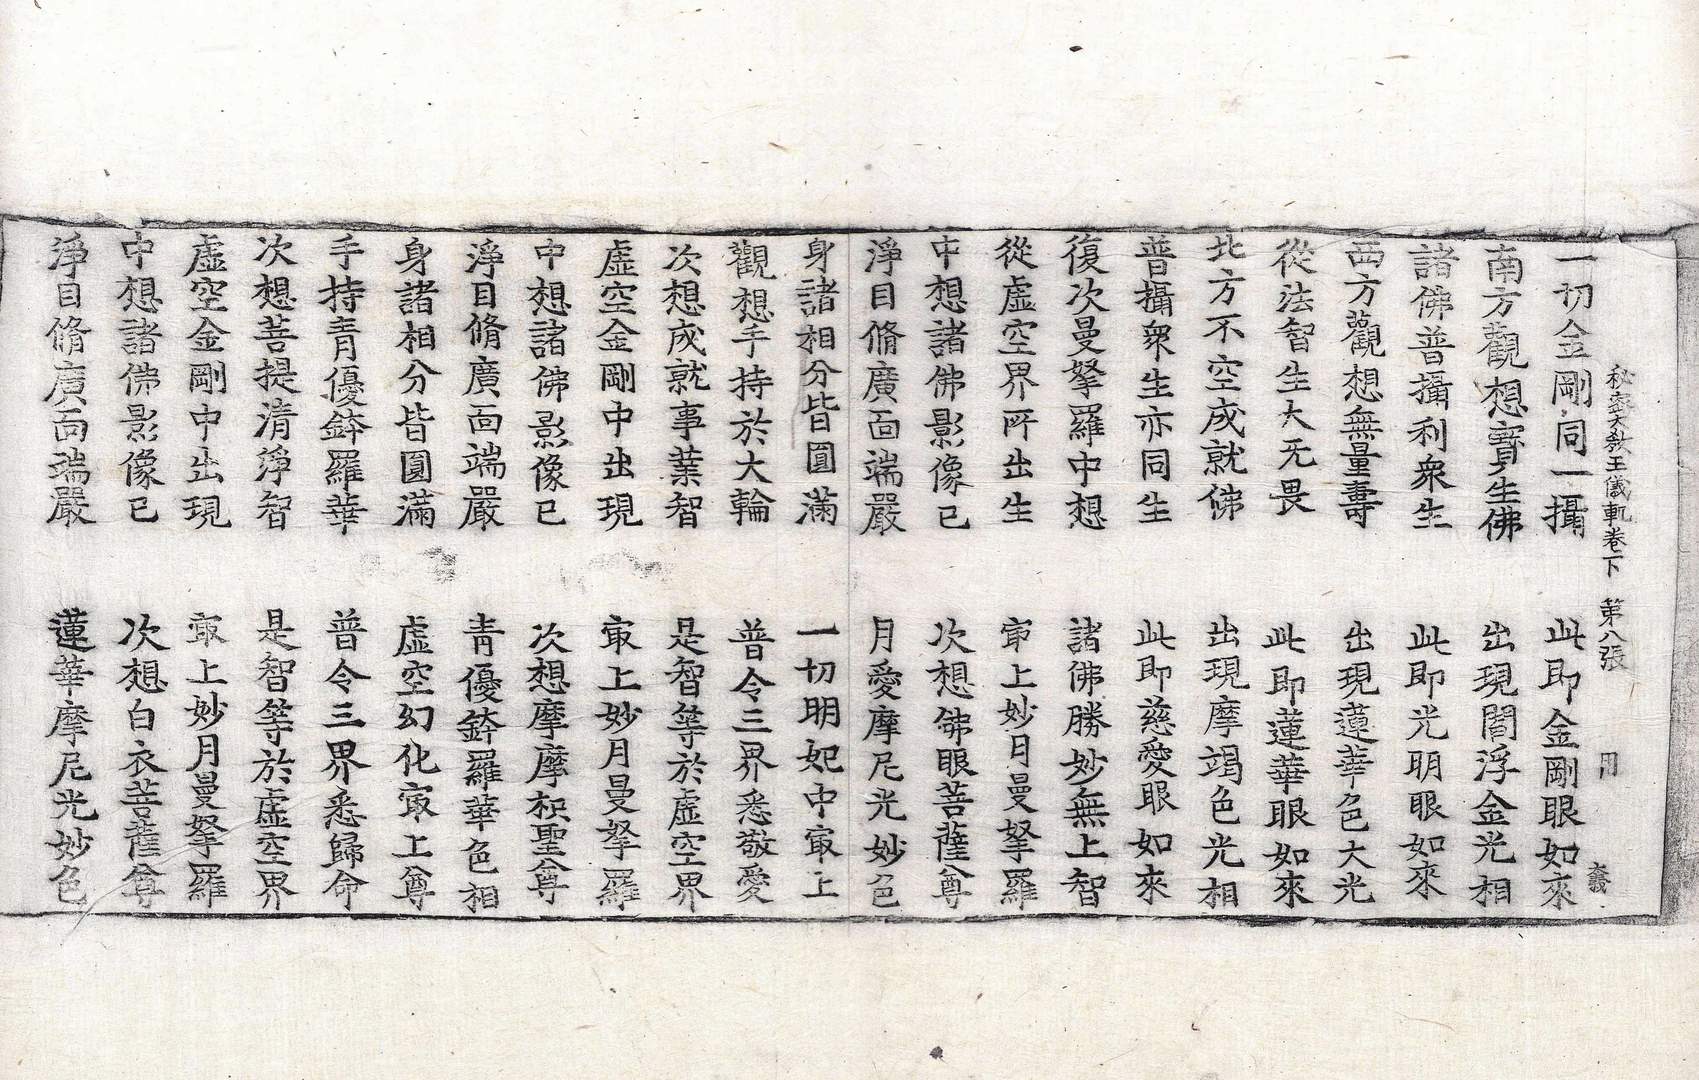 秘密大教王儀軌卷下 第八張 用 義
一切金剛同一攝 此即金剛眼如來
南方觀想寶生佛 出現閻浮金光相
諸佛普攝利衆生 此即光明眼如來
西方觀想無量壽 出現蓮華色大光
從法智生大无畏 此即蓮華眼如來
北方不空成就佛 出現摩竭色光相
普攝衆生亦同生 此即慈愛眼如來
復次曼拏羅中想 諸佛勝妙無上智
從虛空界所出生 㝡上妙月曼拏羅
中想諸佛影像已 次想佛眼菩薩尊
淨目脩廣面端嚴 月愛摩尼光妙色
身諸相分皆圓滿 一切明妃中㝡上
觀想手持於大輪 普令三界悉敬愛
次想成就事業智 是智等於虛空界
虛空金剛中出現 㝡上妙月曼拏羅
中想諸佛影像已 次想摩摩枳聖尊
淨目脩廣面端嚴 青優鉢羅華色相
身諸相分皆圓滿 虛空幻化㝡上尊
手持青優鉢羅華 普令三界悉歸命
次想菩提清淨智 是智等於虛空界
虛空金剛中出現 㝡上妙月曼拏羅
中想諸佛影像已 次想白衣菩薩尊
淨目脩廣面端嚴 蓮華摩尼光妙色